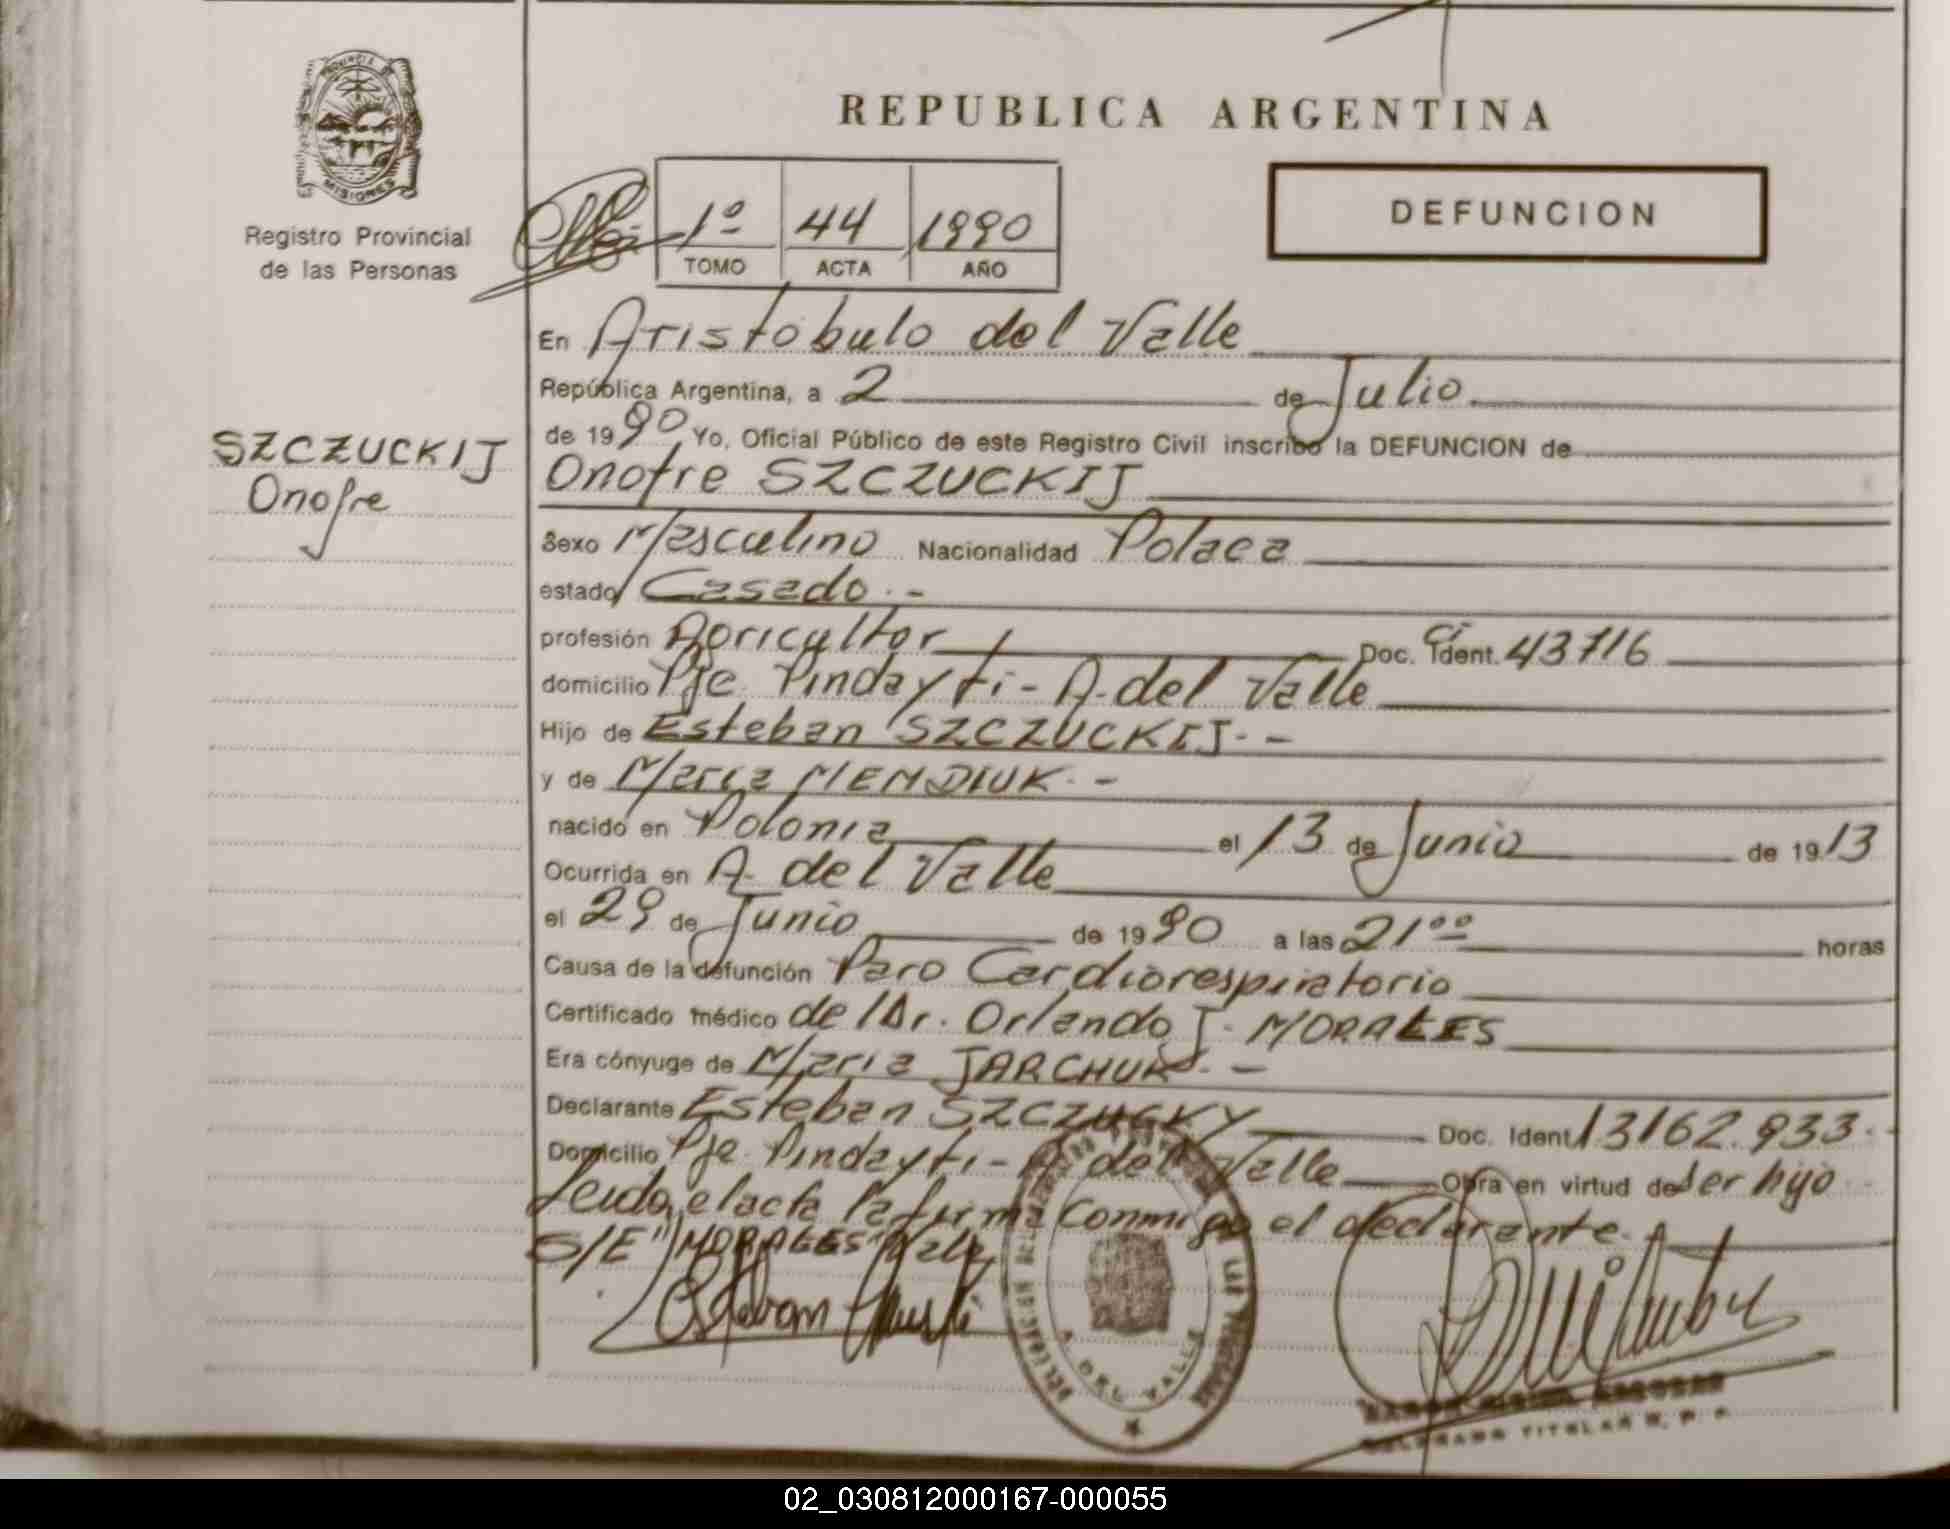 PROVINCIA DE
MISIONES
Registro Provincial
de las Personas
SZCZUCKIJ
Onofre
REPUBLICA ARGENTINA
1º 44 1990
TOMO ACTA AÑO
DEFUNCION
En Aristobulo del Valle
República Argentina, a 2 de Julio.
de 1990 Yo, Oficial Público de este Registro Civil inscribo la DEFUNCION de
Onofre SZCZUCKIJ
Sexo Masculino Nacionalidad Polaca
estado Casado.-
profesión Agricultor Doc. Ident. CI 43716
domicilio Pje. Pindayti - A. del Valle
Hijo de Esteban SZCZUCKIJ.-
y de Maria MENDIUK.-
nacido en Polonia el 13 de Junio de 1913
Ocurrida en A. del Valle
el 29 de Junio de 1990 a las 21ºº horas
Causa de la defunción Paro Cardiorespiratorio
Certificado médico del Dr. Orlando J. MORALES
Era cónyuge de Maria JARCHUK.-
Declarante Esteban SZCZUCKY Doc. Ident 13162.933.-
Domicilio Pje. Pindayti - A. del Valle Obra en virtud de Ser hijo
Leida el acta la firma conmigo el declarante.
S/E "MORALES" Vale
A. DEL VALLE
TITULAR
02_030812000167-000055